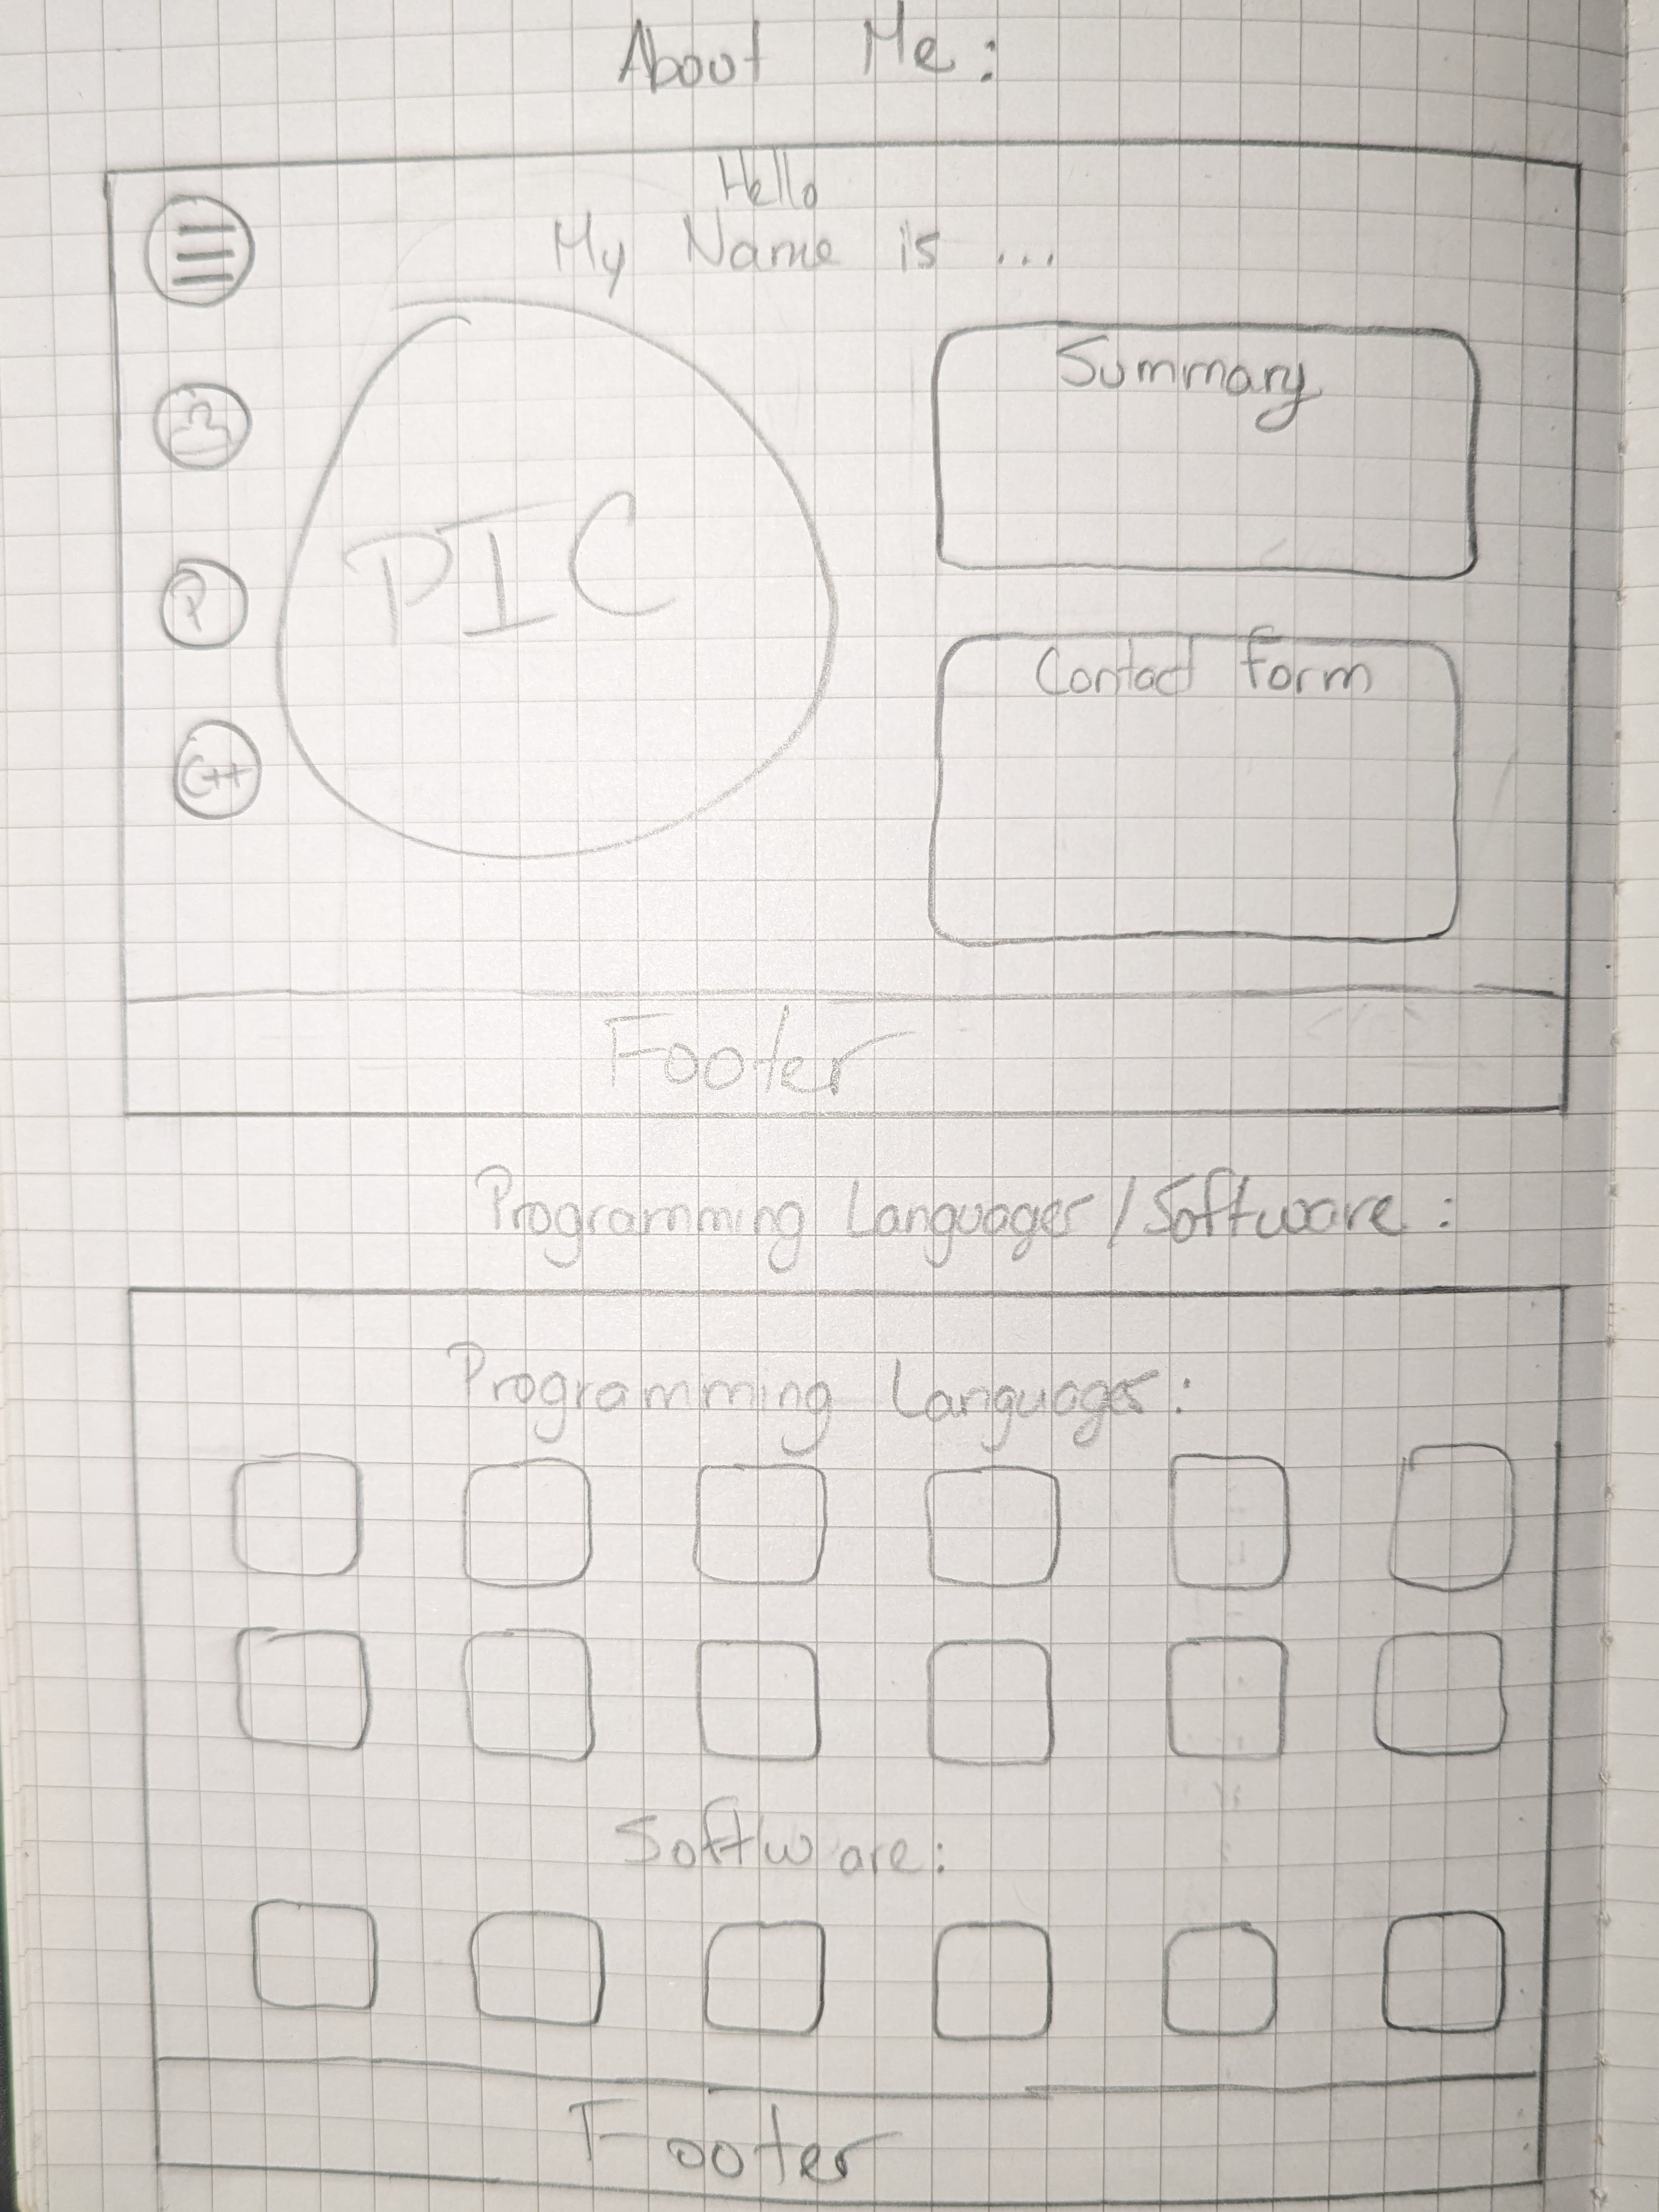 About Me:
Hello
My Name is ...
Summary
PIC
P
Contact Form
C++
Footer
Programming Languages/Software:
Programming Languages:
Software:
Footer